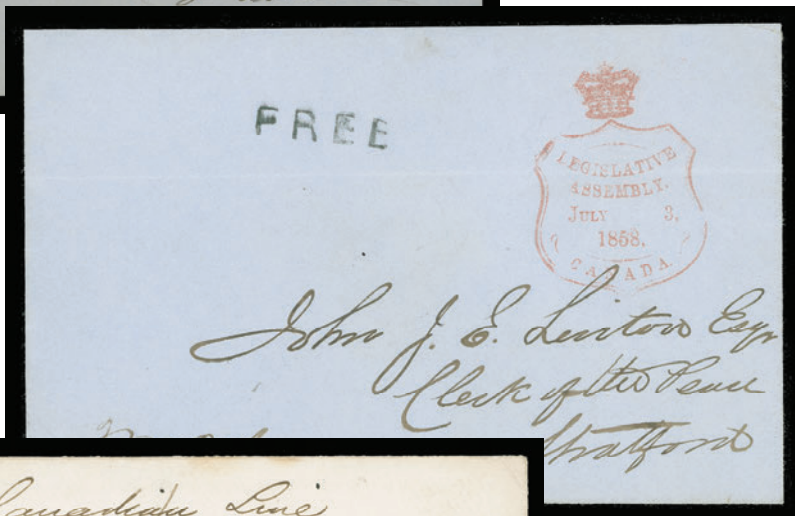 FREE
LEGISLATIVE
ASSEMBLY.
JULY 3,
1858.
CANADA
John J. E. Linton Esqr
Clerk of the Peace
Stratford
Canadian Line